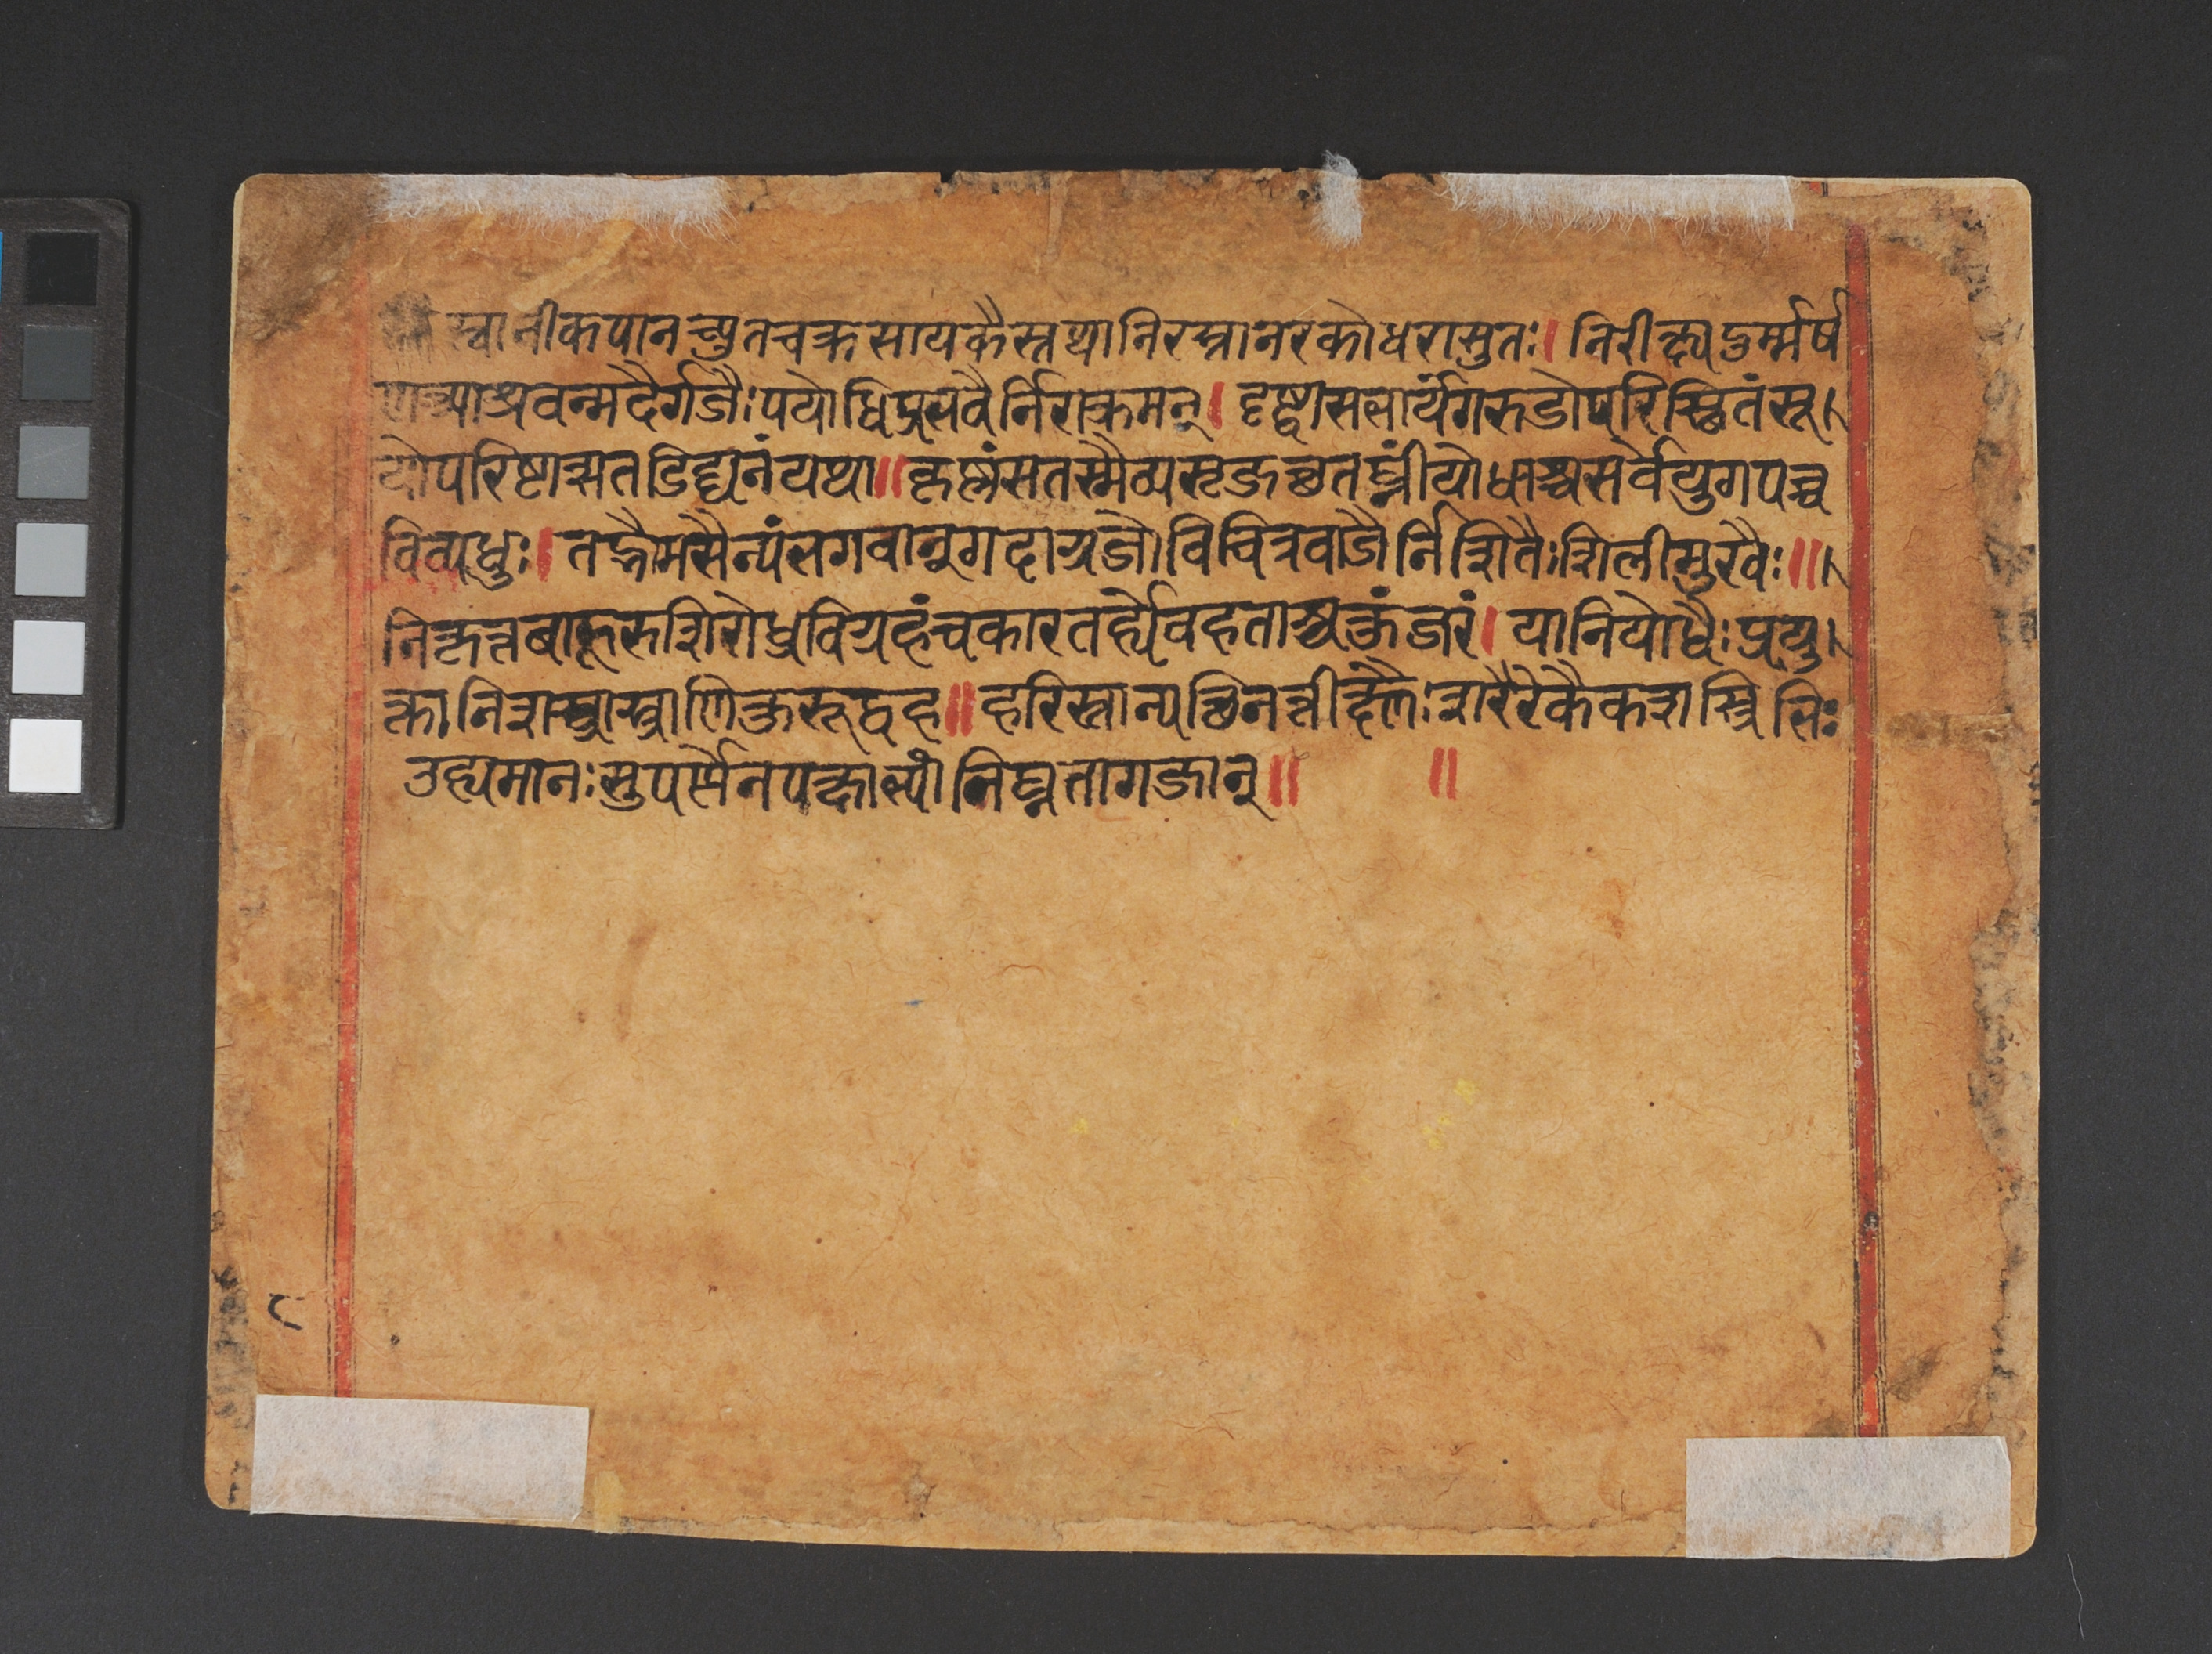 स्वानीकपानच्युतचक्रसायकैस्तथानिरस्तानरकोधरासुतः। निरीक्ष्यदुर्म्मर्ष
णआश्रवन्मदैर्गजैःपयोधिप्रभवैर्निराक्रमत्। दृष्ट्वासभार्यंगरुडोपरिस्थितंसू।
र्योपरिष्टात्सतडिद्घनंयथा॥कृष्णंसतस्मैव्यसृजछतघ्नींयोधाश्चसर्वेयुगपच्च
विव्यधुः। तद्भौमसैन्यंभगवान्गदाग्रजोविचित्रवाजैर्निशितैःशिलीमुखैः॥।
निकृत्तबाहूरुशिरोध्रविग्रहंचकारतर्ह्येवहताश्वकुंजरं। यानियोधैःप्रयु।
क्तानिशस्त्रास्त्राणिकुरूद्वह॥हरिस्तान्यछिनत्तीक्ष्णैःशरैरेकैकशस्त्रिभिः
उह्यमानःसुपर्णेनपक्षाभ्यांनिघ्नतागजान्॥ ॥
८